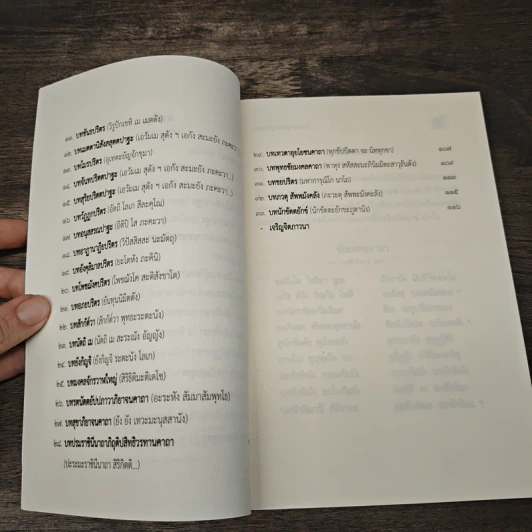 ๑๑. บทขันธปริตร (วิรูปักเขหิ เม เมตตัง)
๑๒. บทเมตตานิสังสสุตตปาฐะ (เอวัมเม สุตัง ฯ เอกัง สะมะยัง ภะคะวา...)
๑๓. บทโมรปริตร (อุเทตะยัญจักขุมา)
(เอวัมเม สุตัง ฯ เอกัง สะมะยัง ภะคะวา...)
(เอวัมเม สุตัง ฯ เอกัง สะมะยัง ภะคะวา...)
๑๖. บทวัฏฏกปริตร (อัตถิ โลเก สีละคุโณ)
๑๗. บทอนุสสรณปาฐะ (อิติปิ โส ภะคะวา)
๑๘. บทอาฏานาฏิยปริตร (วิปัสสิสสะ นะมัตถุ)
๑๙. บทอังคุลิมาลปริตร (ยะโตหัง ภะคินิ)
๒๐. บทโพชฌังคปริตร (โพชฌังโค สะติสังขาโต)
๒๑. บทอภยปริตร (ยันทุนนิมิตตัง)
๒๒. บทสักกัตวา (สักกัตวา พุทธะระตะนัง)
๒๓. บทนัตถิ เม (นัตถิ เม สะระณัง อัญญัง)
๒๔. บทยังกิญจิ (ยังกิญจิ ระตะนัง โลเก)
๒๕. บทมงคลจักรวาฬใหญ่ (สิริธิติมะติเตโช)
๒๖. บทรตนัตตยัปปภาวาภิยาจนคาถา (อะระหัง สัมมาสัมพุทโธ)
๒๗. บทสุขาภิยาจนคาถา (ยัง ยัง เทวะมะนุสสานัง)
๒๘. บทปรมราชินีนาถาภิถุติปสิทธิวรทานคาถา
(ปะระมะราชินีนาถา สิริกิตติ...)
๒๙. บทเทวตาอุยโยชนคาถา (ทุกขัปปัตตา จะ นิททุกขา) ๑๐๗
๓๐. บทพุทธชัยมงคลคาถา (พาหุง สหัสสะมะภินิมมิตะสาวุธันตัง) ๑๐๘
๓๑. บทชยปริตร (มหาการุณิโก นาโถ)
๓๒. บทภวตุ สัพพมังคลัง (ภะวะตุ สัพพะมังคะลัง) ๑๑๕
๓๓. บทนักขัตตยักข์ (นักขัตตะยักขะภูตานัง) ๑๑๖
- เจริญจิตภาวนา